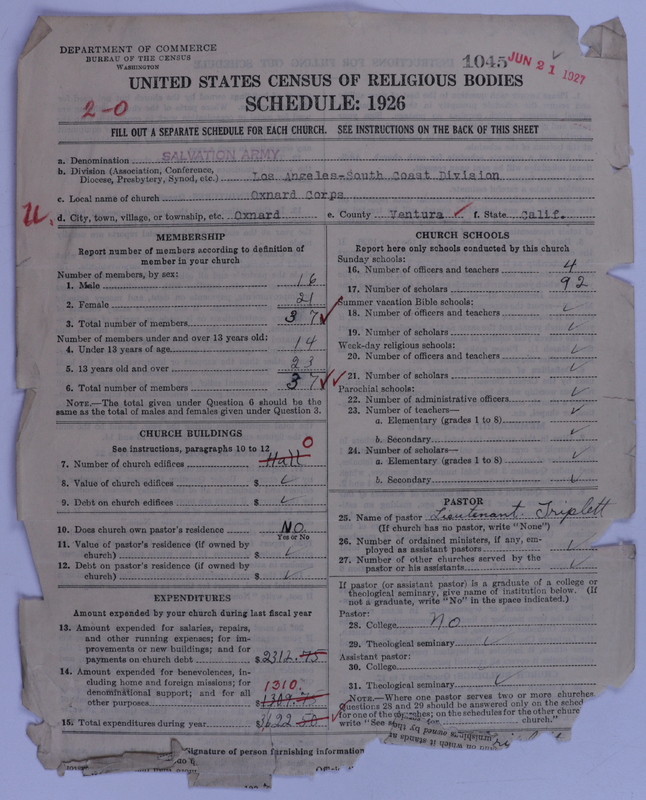 DEPARTMENT OF COMMERCE
BUREAU OF THE CENSUS
WASHINGTON
1045
JUN 21 1927
UNITED STATES CENSUS OF RELIGIOUS BODIES
2-0
SCHEDULE: 1926
FILL OUT A SEPARATE SCHEDULE FOR EACH CHURCH. SEE INSTRUCTIONS ON THE BACK OF THIS SHEET
a. Denomination SALVATION ARMY
b. Division (Association, Conference,
Diocese, Presbytery, Synod, etc.) Los Angeles-South Coast Division
c. Local name of church Oxnard Corps
U. d. City, town, village, or township, etc. Oxnard e. County Ventura f. State Calif.
MEMBERSHIP
Report number of members according to definition of
member in your church
Number of members, by sex:
1. Male 16
2. Female 21
3. Total number of members 37
Number of members under and over 13 years old:
4. Under 13 years of age 14
5. 13 years old and over 23
6. Total number of members 37
NOTE.—The total given under Question 6 should be the
same as the total of males and females given under Question 3.
CHURCH BUILDINGS
See instructions, paragraphs 10 to 12
0
7. Number of church edifices Hall
8. Value of church edifices $
9. Debt on church edifices $
10. Does church own pastor's residence No
Yes or No
11. Value of pastor's residence (if owned by
church) $
12. Debt on pastor's residence (if owned by
church) $
EXPENDITURES
Amount expended by your church during last fiscal year
13. Amount expended for salaries, repairs,
and other running expenses; for im-
provements or new buildings; and for
payments on church debt $2312.75
14. Amount expended for benevolences, in-
cluding home and foreign missions; for
denominational support; and for all
1310.
other purposes $1309.75
15. Total expenditures during year 3622.50
CHURCH SCHOOLS
Report here only schools conducted by this church
Sunday schools:
16. Number of officers and teachers 4
17. Number of scholars 92
Summer vacation Bible schools:
18. Number of officers and teachers
19. Number of scholars
Week-day religious schools:
20. Number of officers and teachers
21. Number of scholars
Parochial schools:
22. Number of administrative officers
23. Number of teachers—
a. Elementary (grades 1 to 8)
b. Secondary
24. Number of scholars—
a. Elementary (grades 1 to 8)
b. Secondary
PASTOR
25. Name of pastor Lieutenant Triplett
(If church has no pastor, write "None")
26. Number of ordained ministers, if any, em-
ployed as assistant pastors
27. Number of other churches served by the
pastor or his assistants
If pastor (or assistant pastor) is a graduate of a college or
theological seminary, give name of institution below. (If
not a graduate, write "No" in the space indicated.)
Pastor:
28. College No
29. Theological seminary
Assistant pastor:
30. College
31. Theological seminary
NOTE.—Where one pastor serves two or more churches
Questions 28 and 29 should be answered only on the sched
for one of the churches; on the schedules for the other churc
write "See church."
Signature of person furnishing information